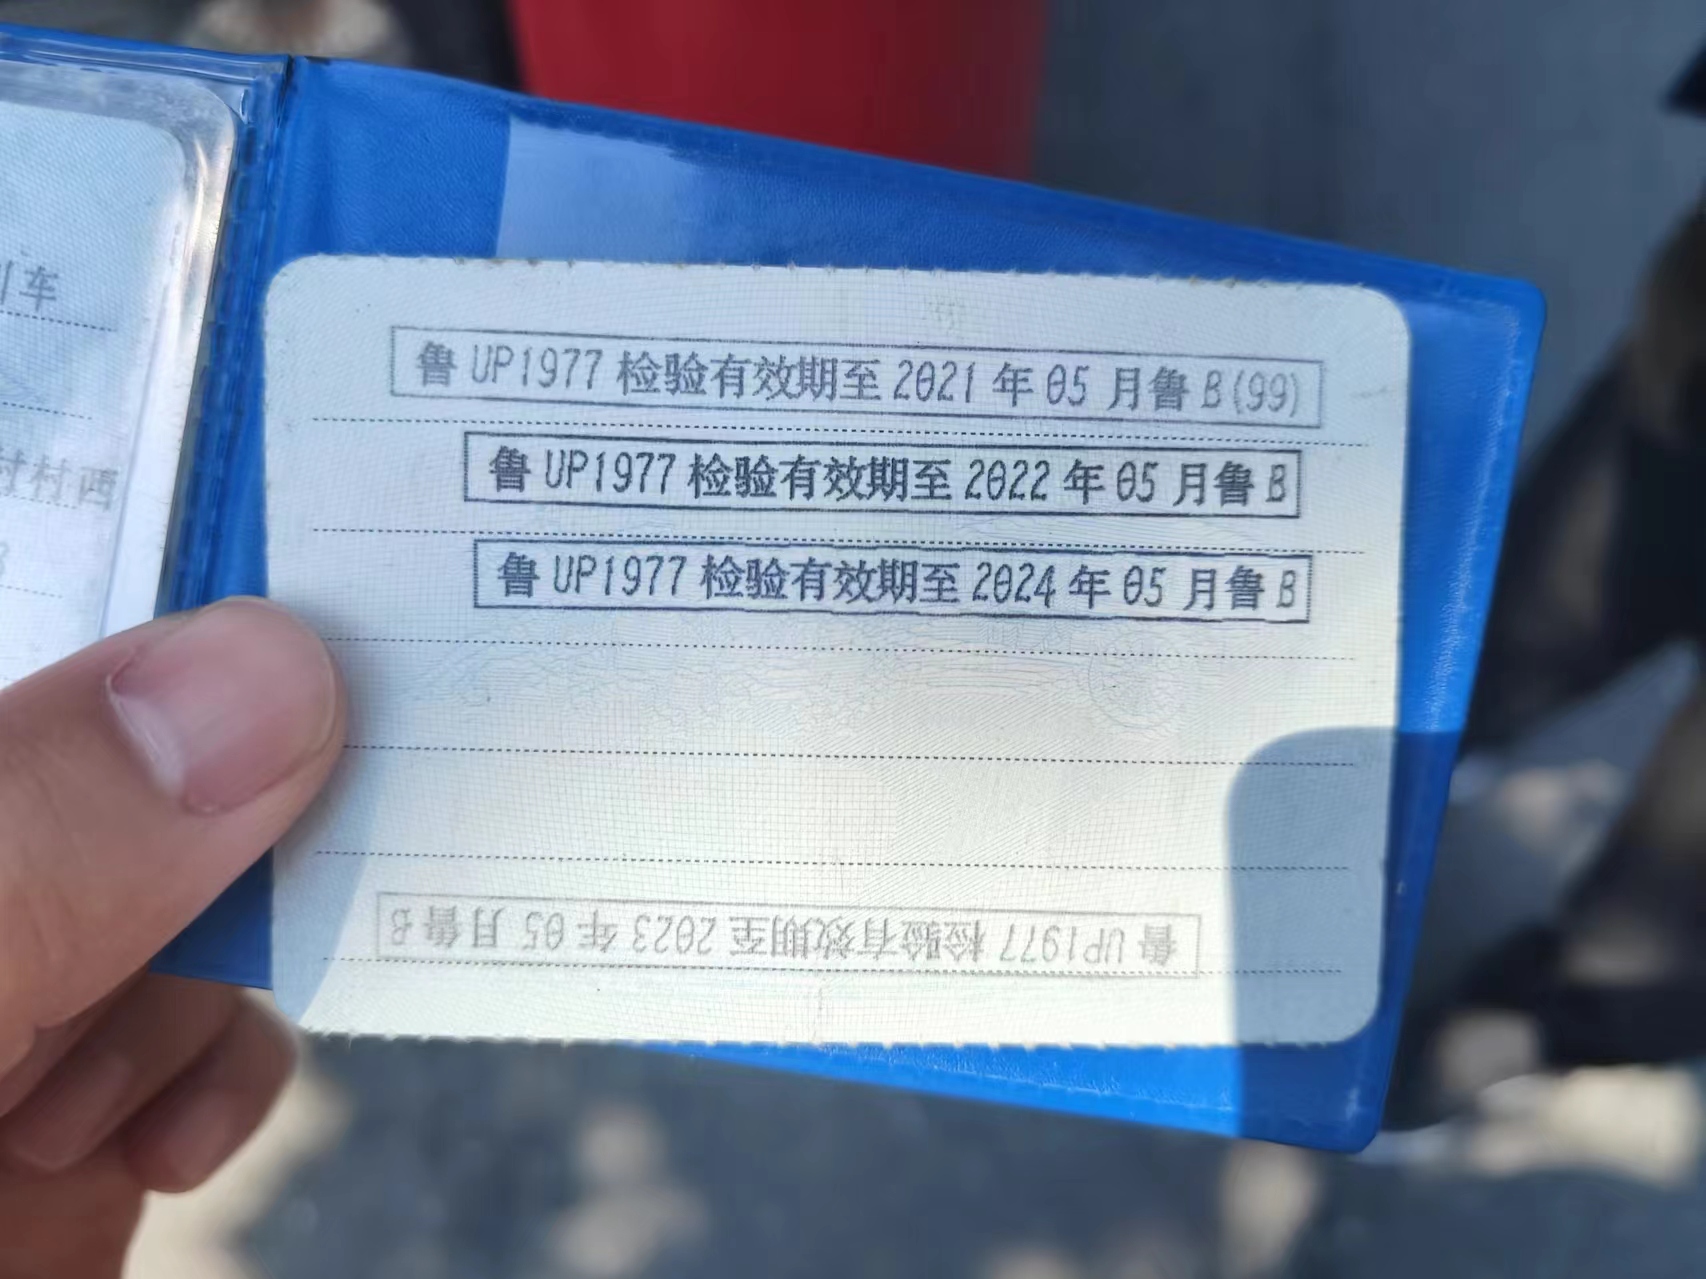 引车
村村西
鲁 UP1977 检验有效期至 2021 年 05 月鲁 B(99)
鲁 UP1977 检验有效期至 2022 年 05 月鲁 B
鲁 UP1977 检验有效期至 2024 年 05 月鲁 B
鲁 UP1977 检验有效期至 2023 年 05 月鲁 B